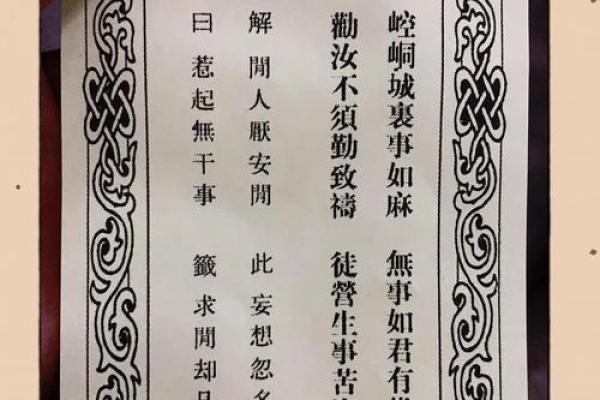 崆峒城裏事如麻 無事如君有
勸汝不須勤致禱 徒營生事苦
解 閒人厭安閒 此 妄想忽
曰 惹起無干事 籤 求閒却